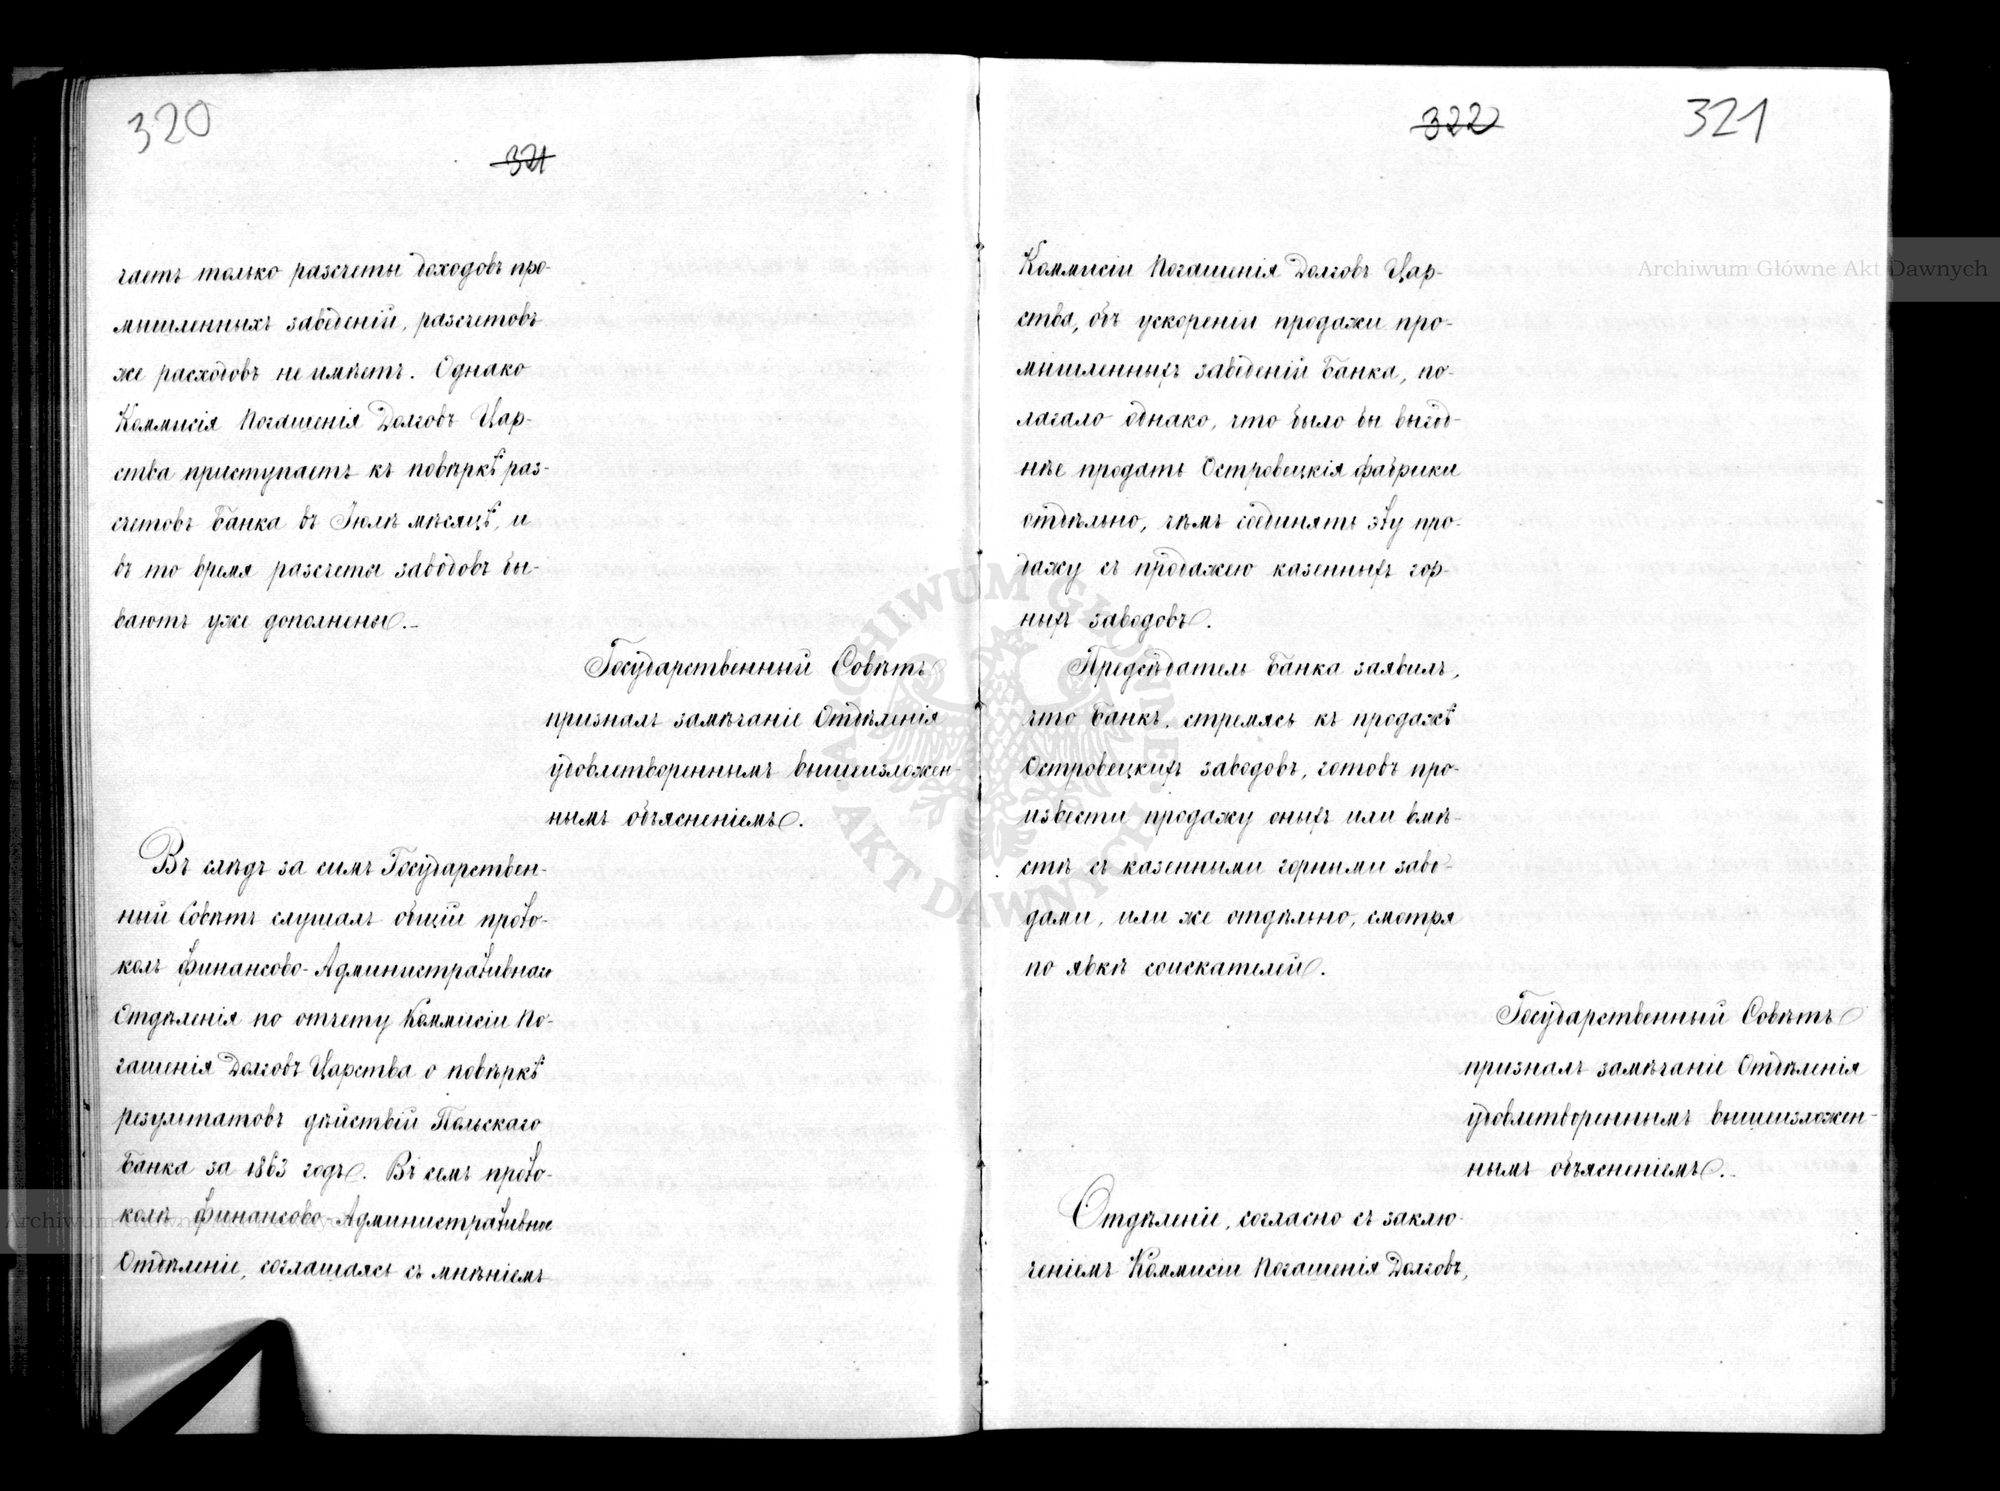 320
321
чаетъ только разсчеты доходовъ про-
мышленныхъ заведеній, разсчетовъ
же расходовъ не имѣетъ. Однако
Коммисія Погашенія Долговъ Цар-
ства приступаетъ къ повѣркѣ раз-
счетовъ Банка въ Іюлѣ мѣсяцѣ, и
въ то время разсчеты заводовъ бы-
ваютъ уже дополнены.-
Государственный Совѣтъ
призналъ замѣчаніе Отдѣленія
удовлетвореннымъ вышеизложен-
нымъ объясненіемъ.
Въ слѣдъ за симъ Государствен-
ный Совѣтъ слушалъ общій прото-
колъ Финансово-Административнаго
Отдѣленія по отчету Коммисіи По-
гашенія Долговъ Царства о повѣркѣ
результатовъ дѣйствій Польскаго
Банка за 1863 годъ. Въ семъ прото-
колѣ Финансово-Административное
Отдѣленіе, соглашаясь съ мнѣніемъ
322
321
Коммисіи Погашенія Долговъ Цар-
ства, объ ускореніи продажи про-
мышленныхъ заведеній Банка, по-
лагало однако, что было бы выгод-
нѣе продать Островецкія фабрики
отдѣльно, чѣмъ соединять эту про-
дажу съ продажею казенныхъ гор-
ныхъ заводовъ.
Предсѣдатель Банка заявилъ,
что Банкъ, стремясь къ продажѣ
Островецкихъ заводовъ, готовъ про-
извести продажу оныхъ или вмѣ-
стѣ съ казенными горными заво-
дами, или же отдѣльно, смотря
по явкѣ соискателей.
Государственный Совѣтъ
призналъ замѣчаніе Отдѣленія
удовлетвореннымъ вышеизложен-
нымъ объясненіемъ.-
Отдѣленіе, согласно съ заклю-
ченіемъ Коммисіи Погашенія Долговъ,
Archiwum Główne Akt Dawnych
Archiwum Główne Akt Dawnych
ARCHIWUM GŁÓWNE · AKT DAWNYCH ·